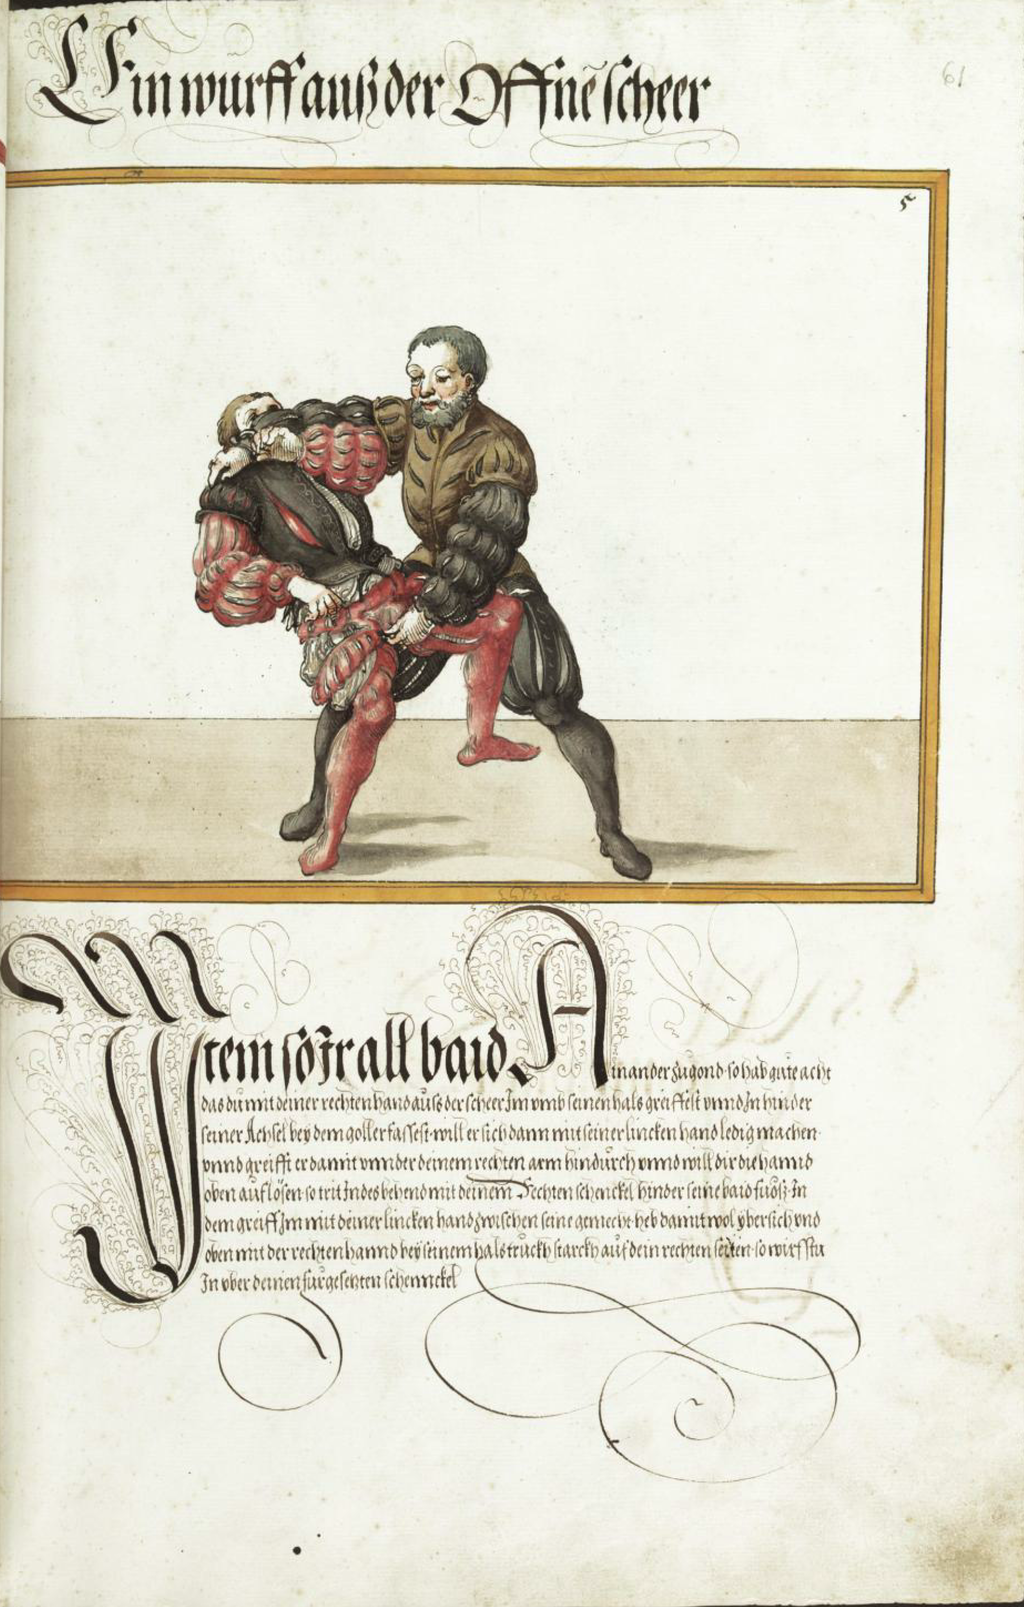 Ein wurff auß der Offnē scheer
61
5
Item so Ir all baid Ainander zugond · so hab gute acht
das du mit deiner rechten hand auß der scheer Im vmb seinen hals greiffest vnnd In hinder
seiner Achsel bey dem goller fassest · will er sich dann mit seiner lincken hand ledig machen ·
vnnd greifft er damit vnnder deinem rechten arm hindurch vnnd will dir die hannd
oben auflösen · so trit Indes behend mit deinem Rechten schenckel hinder seine baid fuosz · In
dem greiff Im mit deiner lincken hand zwischen seine gemecht · heb damit wol ybersich vnd
oben mit der rechten hannd bey seinem hals truckh starckh auf dein rechten seiten · so wirfstu
In vber deinen fürgesetzten schennckel